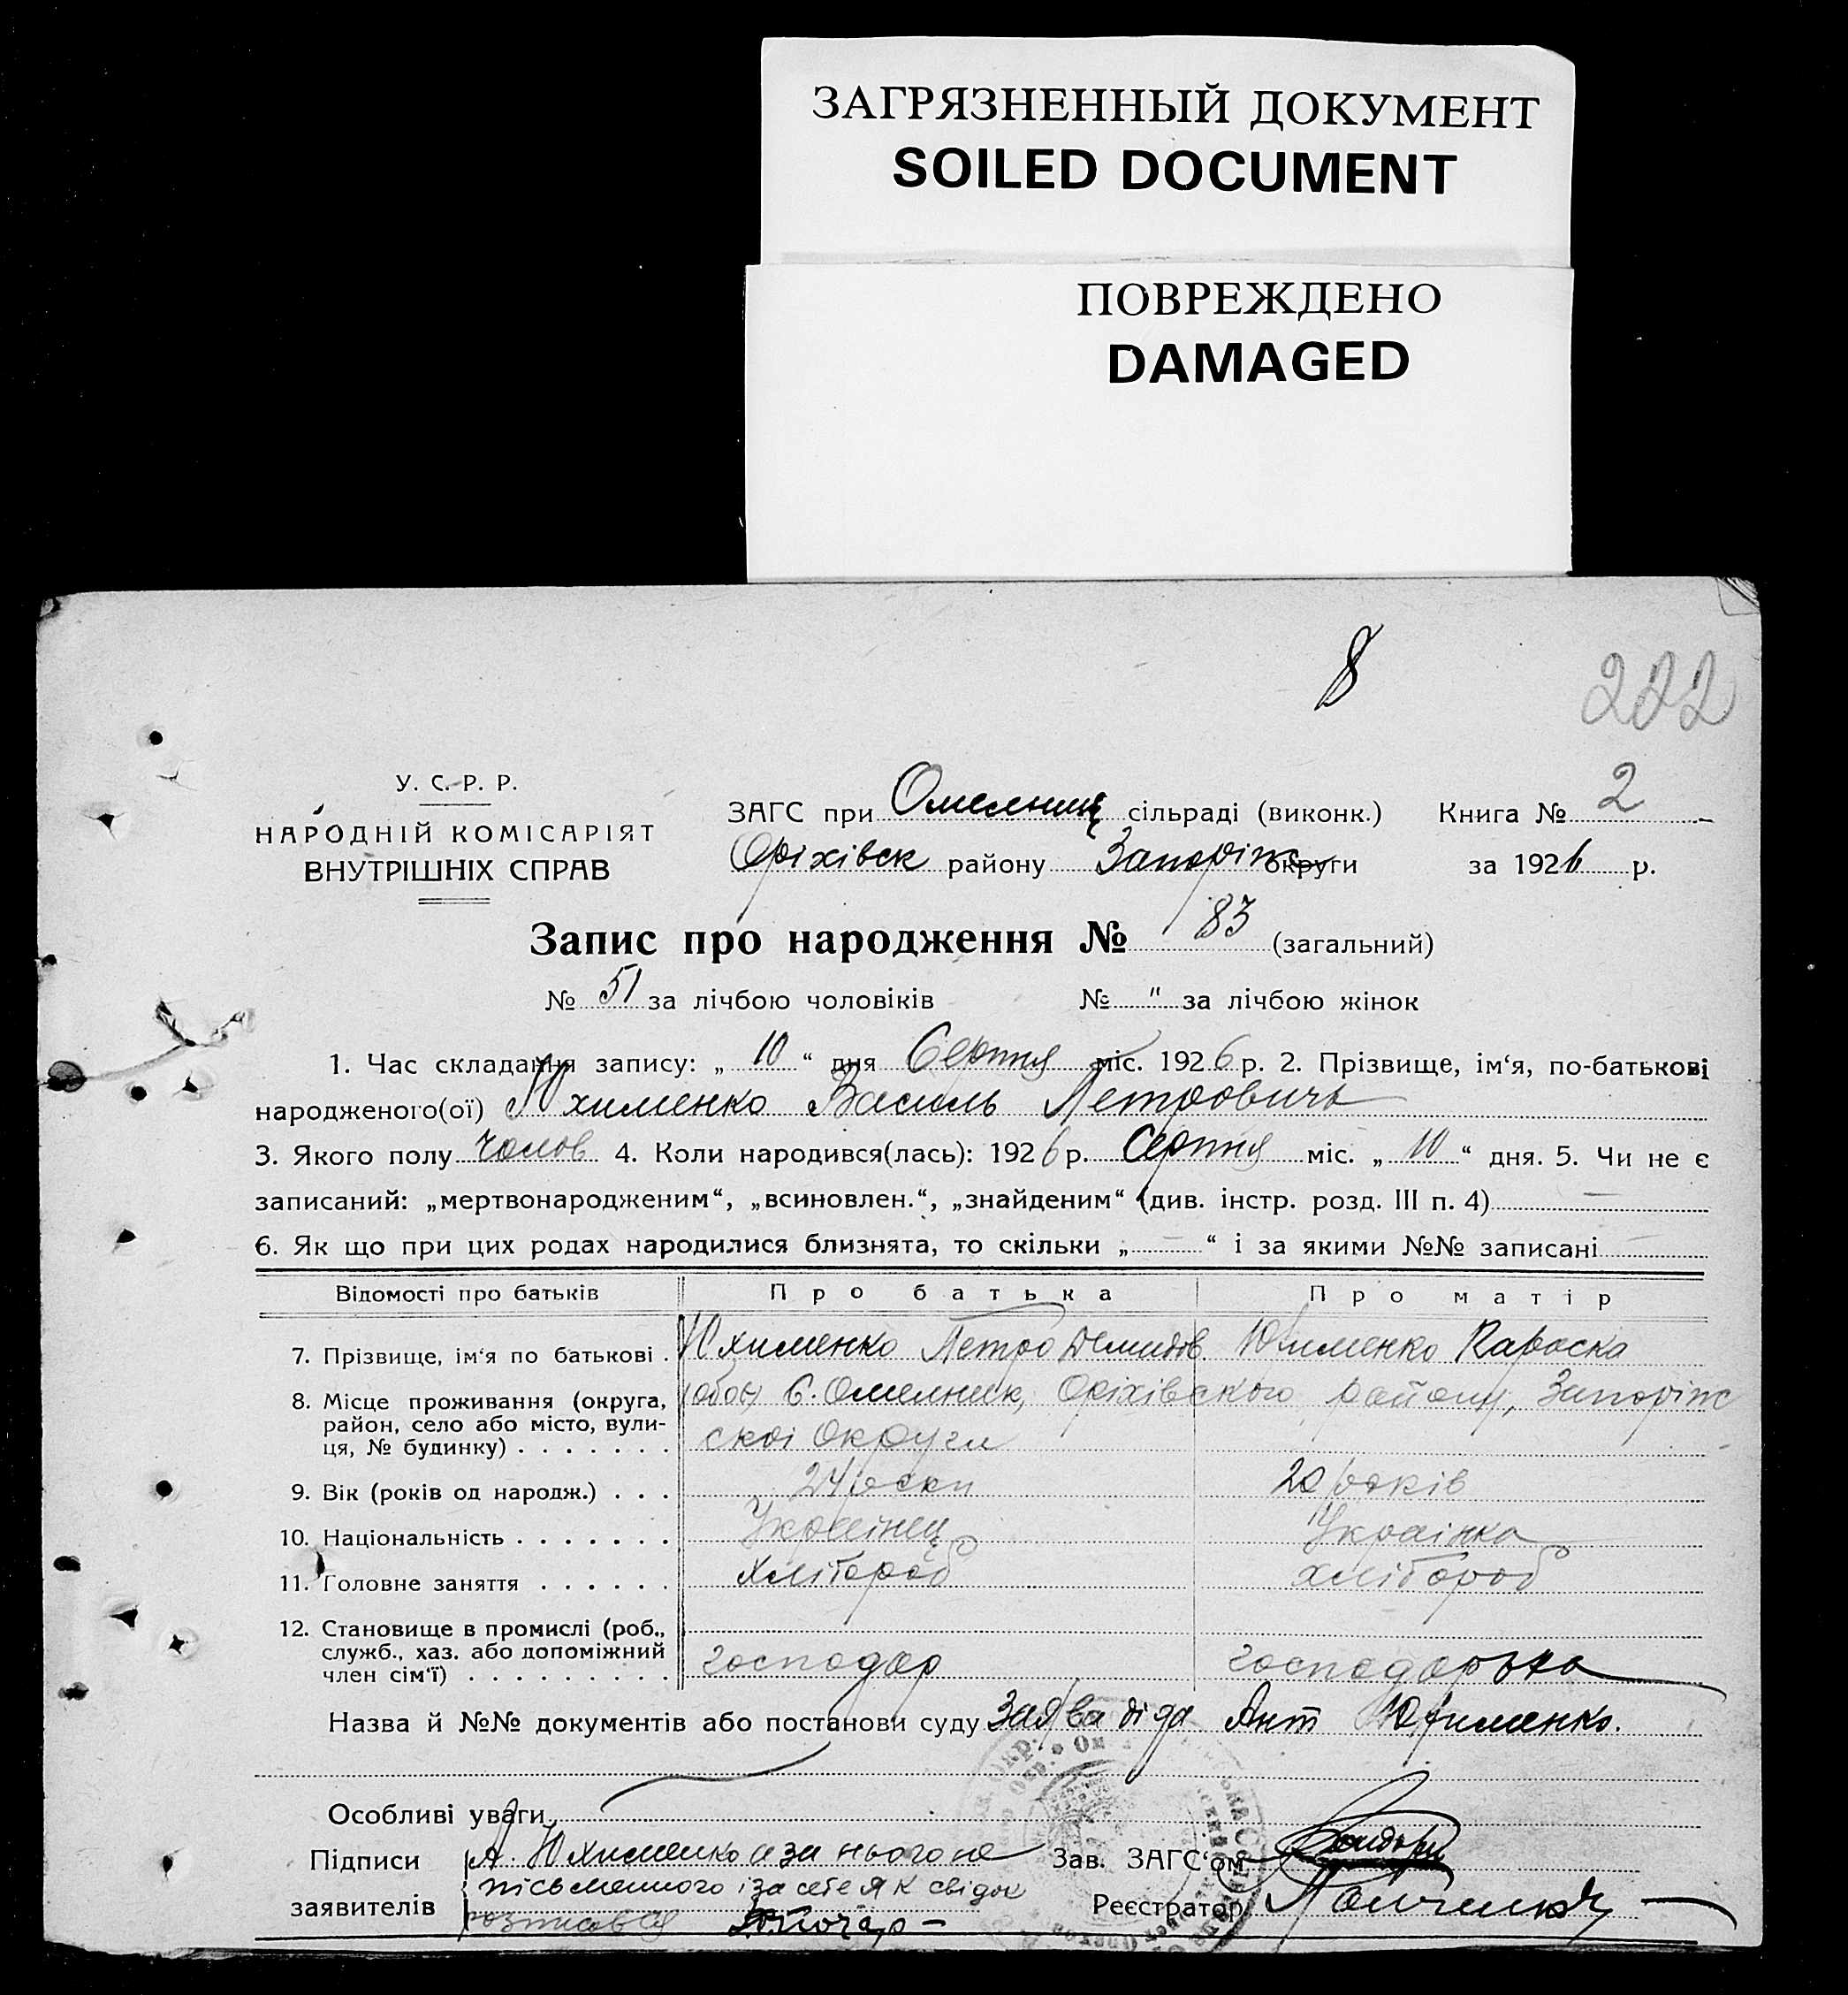 ЗАГРЯЗНЕННЫЙ ДОКУМЕНТ
SOILED DOCUMENT
ПОВРЕЖДЕНО
DAMAGED
8
222
У. С. Р. Р.
НАРОДНІЙ КОМІСАРІЯТ
ВНУТРІШНІХ СПРАВ
ЗАГС при Омелниц сільраді (виконк.) Книга № 2
Оріхівск району Запоріж округи за 1926 р.
Запис про народження № 83 (загальний)
№ 51 за лічбою чоловіків № " за лічбою жінок
1. Час складання запису: „ 10 “ дня Серпня міс. 1926 р. 2. Прізвище, ім‘я, по-батькові
народженого(ої) Юхименко Василь Петровичь
3. Якого полу чолов 4. Коли народився(лась): 1926 р. Серпня міс. „ 10 “ дня. 5. Чи не є
записаний: „мертвонародженим“, „всиновлен.“, „знайденим“ (див. інстр. розд. III п. 4) —
6. Як що при цих родах народилися близнята, то скільки „ — “ і за якими №№ записані —
Відомості про батьків Про батька Про матір
7. Прізвище, ім‘я по батькові . Юхименко Петро Демидов. Юхименко Параска
8. Місце проживання (округа, район, село або місто, вулиця, № будинку) . . . . . . . С. Омелник, Оріхівского району, Запоріж
скоі Округи
9. Вік (років од народж.) . . . 24 роки 20 років
10. Національність . . . . . . . Украінец Украінка
11. Головне заняття . . . . . . хлібороб хлібороб
12. Становище в промислі (роб., служб., хаз. або допоміжний член сім‘ї) . . . . . . . . . господар господарька
Назва й №№ документів або постанови суду Заява діда Ант Юхименко.
Особливі уваги
Підписи заявителів А. Юхименко а за нього не
письменного і за себе як свідок
розписався
Зав. ЗАГС‘ом
Реєстратор